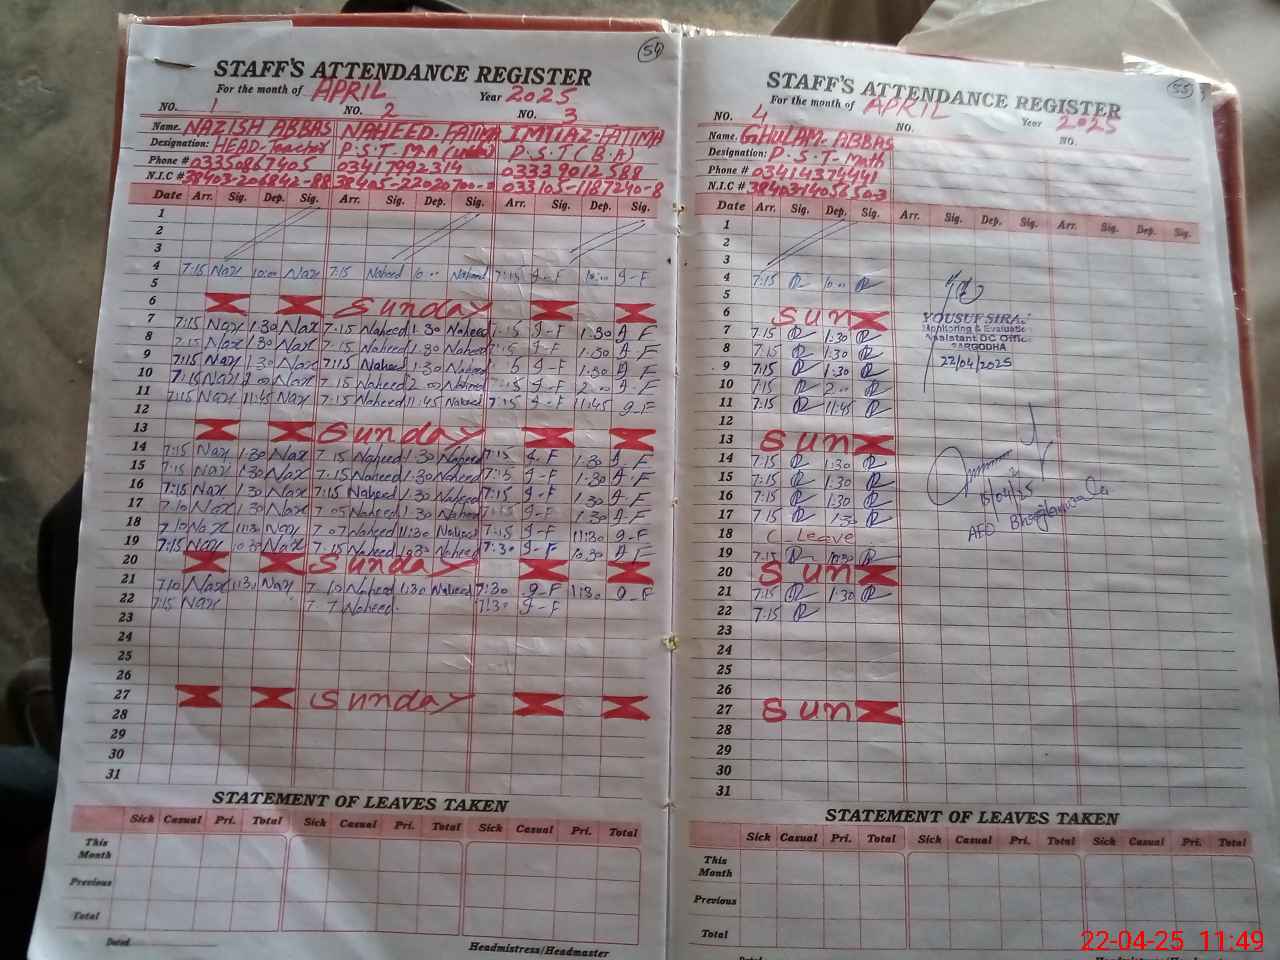 54
STAFF'S ATTENDANCE REGISTER
For the month of APRIL Year 2025
NO. 1 NO. 2 NO. 3
Name. NAZISH ABBAS NAHEED. FATIMA IMTIAZ-FATIMA
Designation: HEAD-Teacher P.S.T M.A P.S.T (B.A)
Phone # 03350867405 03417992314 03339012588
N.I.C #
Date Arr. Sig. Dep. Sig. Arr. Sig. Dep. Sig. Arr. Sig. Dep. Sig.
1
2
3
4 7:15 Naz 10:00 Naz 7:15 Naheed 10:00 Naheed 7:15 I-F 10:00 I-F
5
6 Sunday
7 7:15 Naz 1:30 Naz 7:15 Naheed 1:30 Naheed 7:15 I-F 1:30 I-F
8 7:15 Naz 1:30 Naz 7:15 Naheed 1:30 Naheed 7:15 I-F 1:30 I-F
9 7:15 Naz 1:30 Naz 7:15 Naheed 1:30 Naheed 7:15 I-F 1:30 I-F
10 7:15 Naz 2:00 Naz 7:15 Naheed 2:00 Naheed 7:15 I-F 2:00 I-F
11 7:15 Naz 11:45 Naz 7:15 Naheed 11:45 Naheed 7:15 I-F 11:45 I-F
12
13 Sunday
14 7:15 Naz 1:30 Naz 7:15 Naheed 1:30 Naheed 7:15 I-F 1:30 I-F
15 7:15 Naz 1:30 Naz 7:15 Naheed 1:30 Naheed 7:15 I-F 1:30 I-F
16 7:15 Naz 1:30 Naz 7:15 Naheed 1:30 Naheed 7:15 I-F 1:30 I-F
17 7:10 Naz 1:30 Naz 7:05 Naheed 1:30 Naheed 7:15 I-F 1:30 I-F
18 7:10 Naz 11:30 Naz 7:07 Naheed 11:30 Naheed 7:15 I-F 11:30 I-F
19 7:15 Naz 10:30 Naz 7:15 Naheed 10:30 Naheed 7:30 I-F 10:30 I-F
20 Sunday
21 7:10 Naz 1:30 Naz 7:10 Naheed 1:30 Naheed 7:30 I-F 1:30 I-F
22 7:15 Naz 7:7 Naheed 7:30 I-F
23
24
25
26
27 Sunday
28
29
30
31
STATEMENT OF LEAVES TAKEN
Sick Casual Pri. Total Sick Casual Pri. Total Sick Casual Pri. Total
This Month
Previous
Total
Dated
Headmistress/Headmaster
55
STAFF'S ATTENDANCE REGISTER
For the month of APRIL Year 2025
NO. 4 NO. NO.
Name. GHULAM-ABBAS
Designation: P.S.T-Math
Phone # 03414374441
N.I.C #
Date Arr. Sig. Dep. Sig. Arr. Sig. Dep. Sig. Arr. Sig. Dep. Sig.
1
2
3
4 7:15 10:00
5
6 Sun
7 7:15 1:30
8 7:15 1:30
9 7:15 1:30
10 7:15 2:00
11 7:15 11:45
12
13 Sun
14 7:15 1:30
15 7:15 1:30
16 7:15 1:30
17 7:15 1:30
18 C_Leave
19 7:15 10:30
20 Sun
21 7:15 1:30
22 7:15
23
24
25
26
27 Sun
28
29
30
31
YOUSUF SIRAJ
Monitoring & Evaluatio
Assistant DC Offic
SARGODHA
22/04/2025
15/04/25
AEO
STATEMENT OF LEAVES TAKEN
Sick Casual Pri. Total Sick Casual Pri. Total Sick Casual Pri. Total
This Month
Previous
Total
22-04-25 11:49